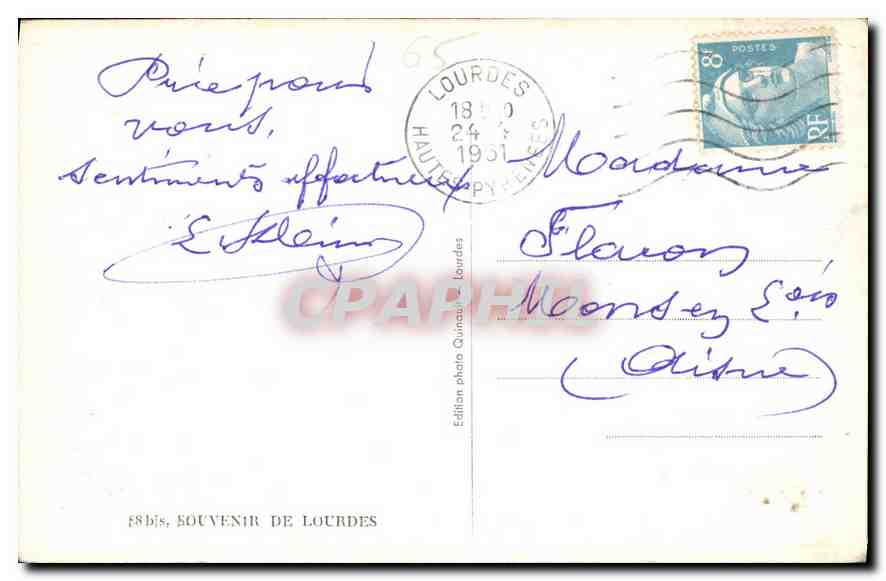 65
Prie pour
vous,
sentiments affectueux
LOURDES
18
24
1951
HAUTES-PYRENEES
8F
POSTES
RF
Madame
Flavon
Mons en L
(Aisne)
Edition photo Quinault - Lourdes
CPAPHIL
88bis. SOUVENIR DE LOURDES